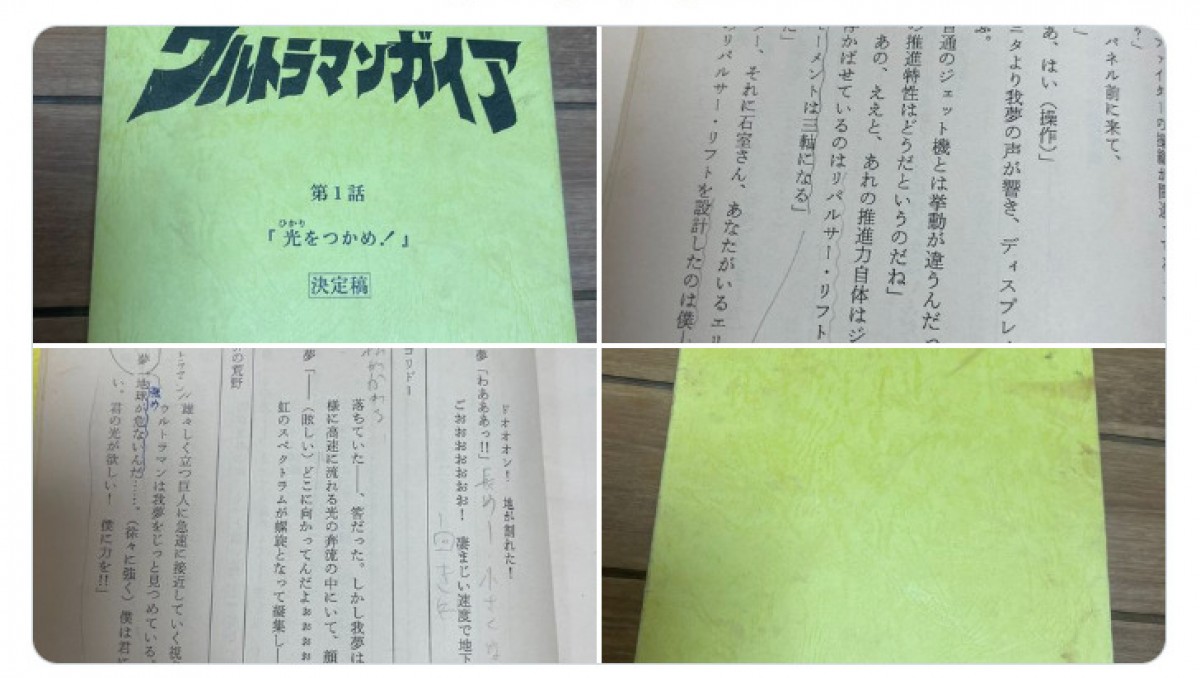 ウルトラマンガイア
第1話
ひかり
『光をつかめ!』
決定稿
パネル前に来て、
」
あ、はい(操作)」
ニタより我夢の声が響き、ディスプレ
普通のジェット機とは挙動が違うんだ
の推進特性はどうだというのだね」
あの、ええと、あれの推進力自体はジ
浮かばせているのはリパルサー・リフト
ーメントは三軸になる」
ー、それに石室さん、あなたがいるエリ
リパルサー・リフトを設計したのは僕
ドオオオン! 地が割れた!
夢「わあああっ!!」長めー小さくな
ごおおおおおおお! 凄まじい速度で地下
コリドー
落ちていた――、筈だった。しかし我夢は
様に高速に流れる光の奔流の中にいて、顔
夢「――(眩しい)どこに向かってんだよぉぉぉぉ
虹のスペクトラムが螺旋となって凝集し―
の荒野
雄々しく立つ巨人に急速に接近していく視
ウルトラマンは我夢をじっと見つめている。
夢「地球が危ないんだ……。(徐々に強く)僕は君に
い。君の光が欲しい! 僕に力を!!」